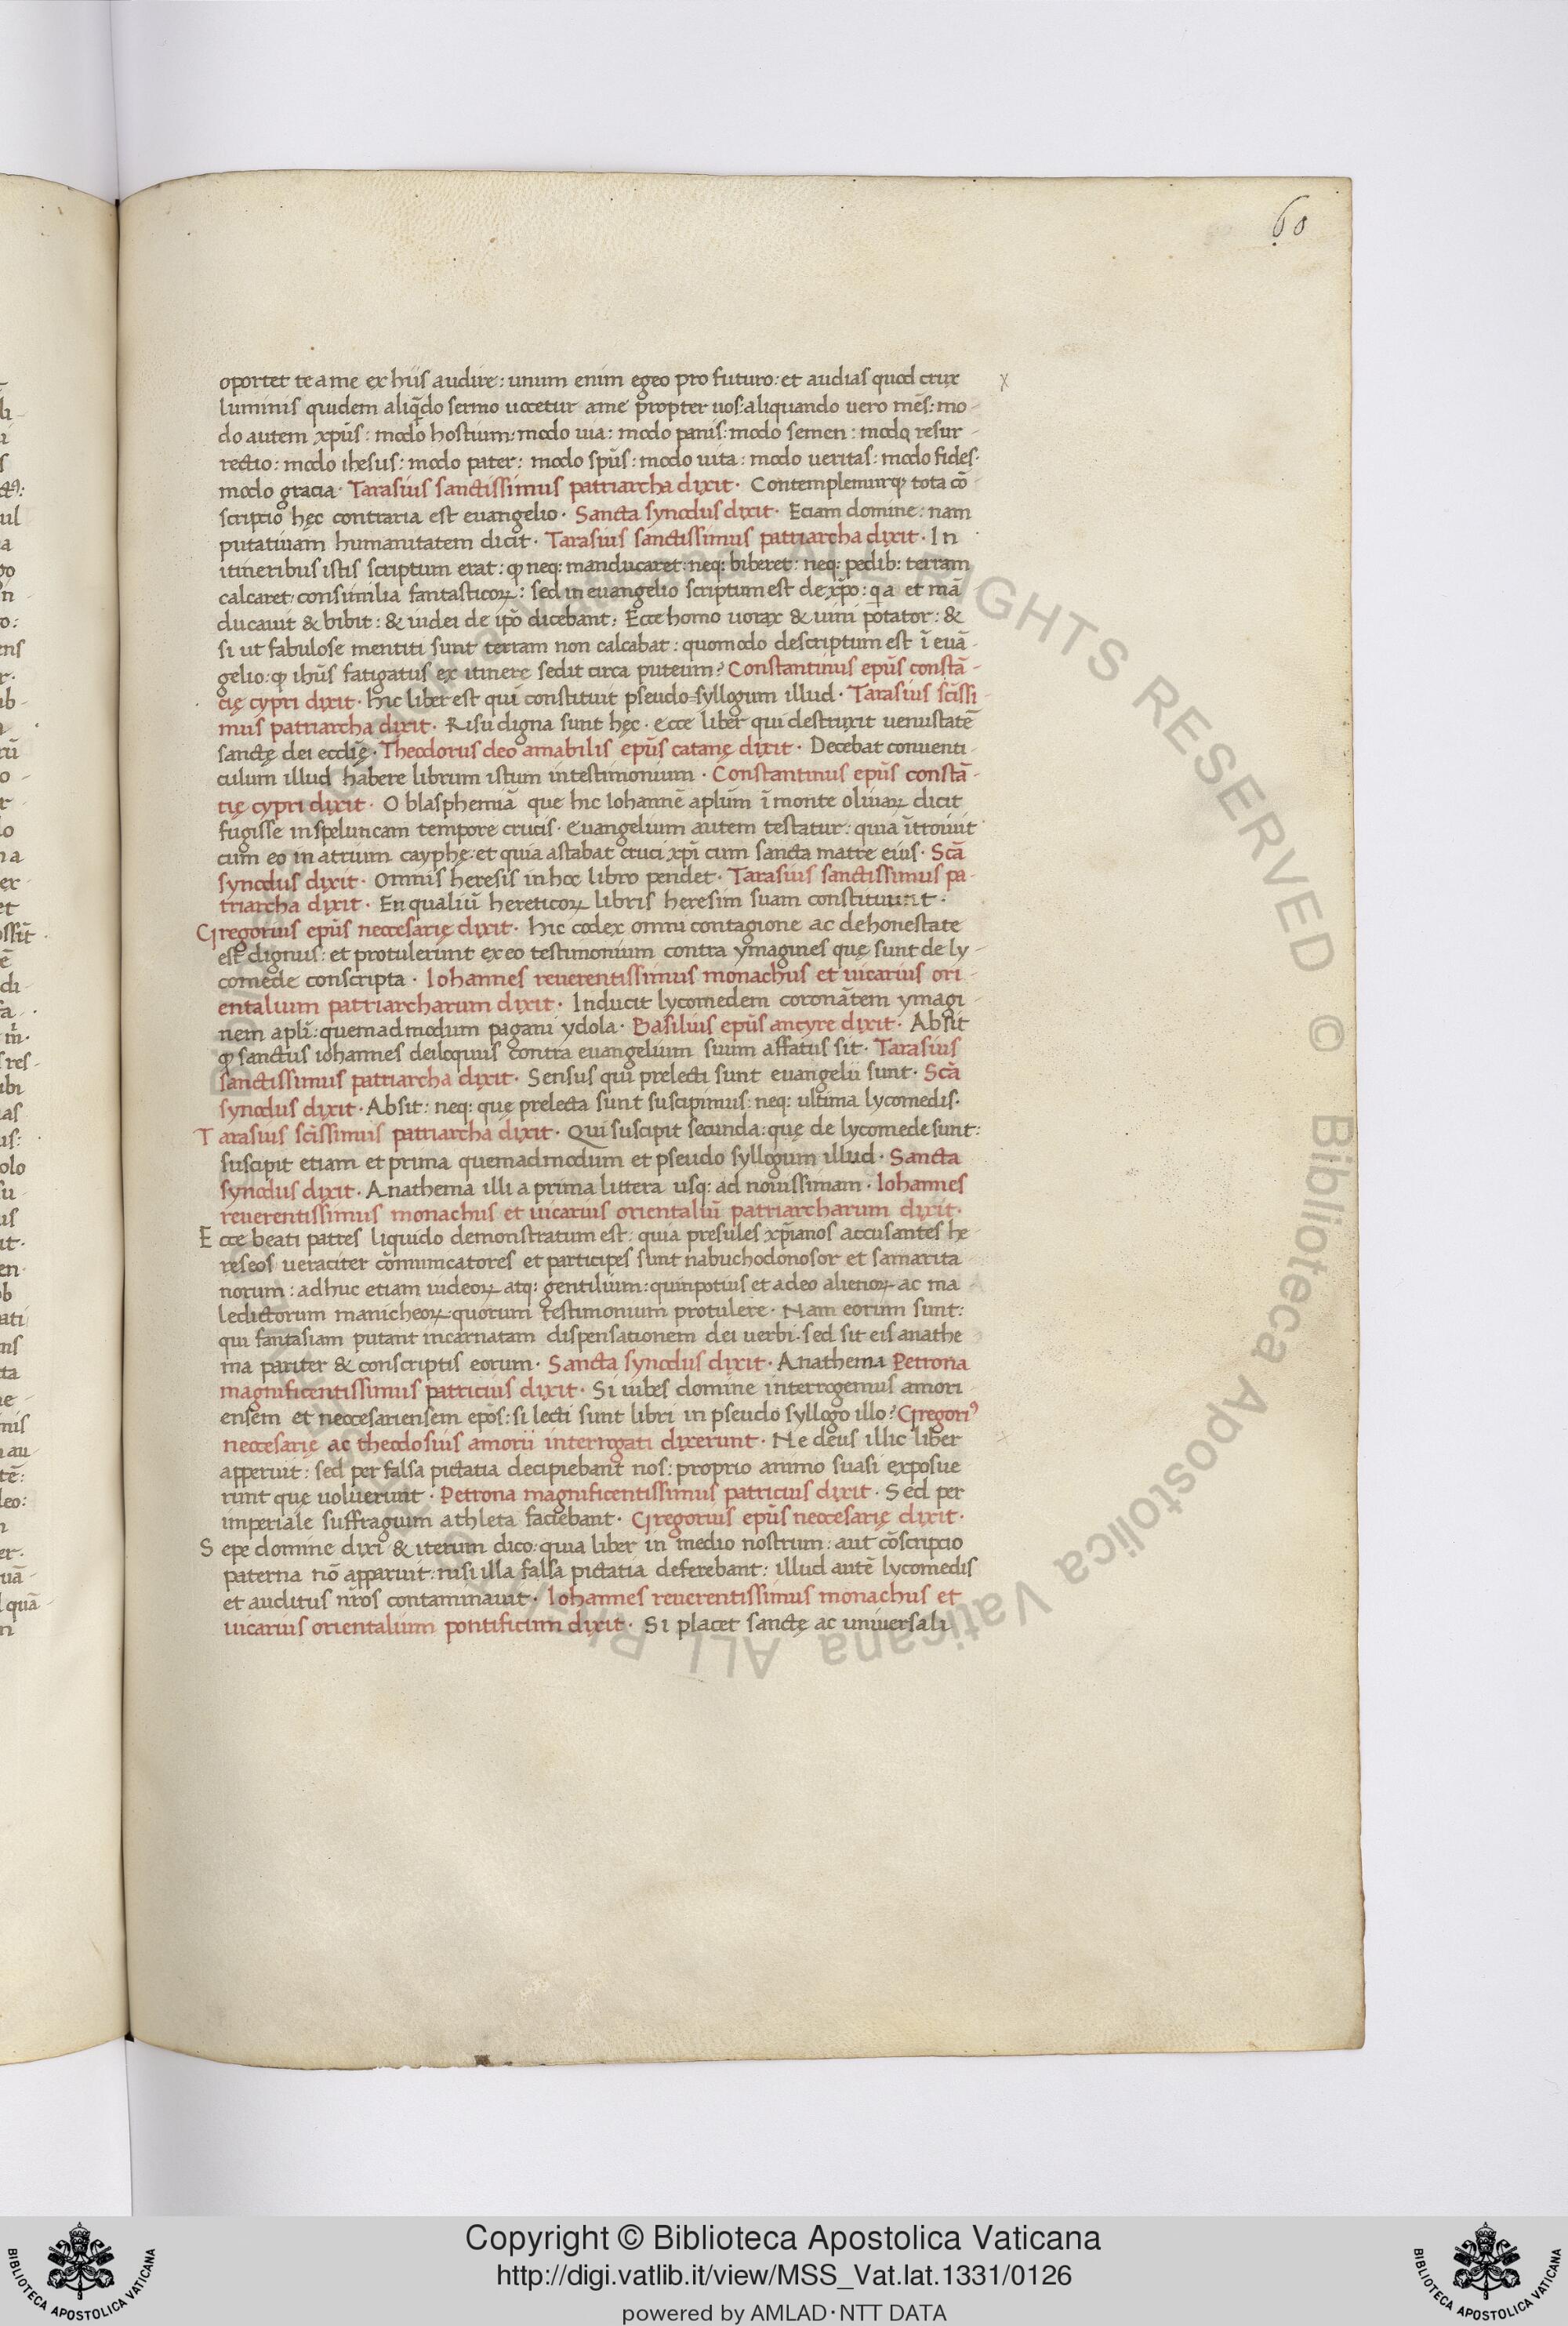 60
oportet te a me ex hiis audire: unum enim egeo pro futuro: et audias quod crux
luminis quidem aliq̃do sermo uocetur a me propter uos: aliquando uero mẽs: mo-
do autem xp̃us: modo hostium: modo uia: modo panis: modo semen: modo resur-
rectio: modo ihesus: modo pater: modo sp̃us: modo uita: modo ueritas: modo fides:
modo gracia· Tarasius sanctissimus patriarcha dixit· Contemplemur qꝫ tota cõ-
scriptio hęc contraria est euangelio· Sancta synodus dixit· Etiam domine: nam
putatiuam humanitatem dicit· Tarasius sanctissimus patriarcha dixit· In
itineribus istis scriptum erat: ꝙ neq: manducaret: neq: biberet: neq: pedib: terram
calcaret: consimilia fantasticoꝝ: sed in euangelio scriptum est de xp̃o: q̃a et mã
ducauit & bibit: & iudei de ip̃o dicebant: Ecce homo uorax & uini potator: &
si ut fabulose mentiti sunt terram non calcabat: quomodo descriptum est ĩ euã-
gelio: ꝙ ihũs fatigatus ex itinere sedit circa puteum? Constantinus ep̃us constã-
cię cypri dixit· hic liber est qui constituit pseudo-syllogum illud· Tarasius sc̃issi-
mus patriarcha dixit· Risu digna sunt hęc· ecce liber qui destruxit uenustatẽ
sanctę dei eccl̃ię· Theodorus deo amabilis ep̃us catanę dixit· Decebat conuenti-
culum illud habere librum istum in testimonium· Constantinus ep̃us constã-
tię cypri dixit· O blasphemiã que hic Iohannẽ ap̃lum ĩ monte oliuaꝝ dicit
fugisse in speluncam tempore crucis· euangelium autem testatur: quia ĩtroiuit
cum eo in atrium cayphę: et quia astabat cruci xp̃i cum sancta matre eius· Sc̃a
synodus dixit· Omnis heresis in hoc libro pendet· Tarasius sanctissimus pa-
triarcha dixit· En qualiũ hereticoꝝ libris heresim suam constituunt·
Gregorius ep̃us neocesarię dixit· hic codex omni contagione ac dehonestate
est dignus: et protulerunt ex eo testimonium contra ymagines quę sunt de ly-
comede conscripta· Iohannes reuerentissimus monachus et uicarius ori-
entalium patriarcharum dixit· Inducit lycomedem coronãtem ymagi-
nem apl̃i: quemadmodum pagani ydola· Basilius ep̃us ancyre dixit· Absit
ꝙ sanctus iohannes deiloquus contra euangelium suum affatus sit· Tarasius
sanctissimus patriarcha dixit· Sensus qui prelecti sunt euangelii sunt· Sc̃a
synodus dixit· Absit: neq: quę prelecta sunt suscipimus: neq: ultima lycomedis·
Tarasius sc̃issimus patriarcha dixit· Qui suscipit secunda: quę de lycomede sunt:
suscipit etiam et prima quemadmodum et pseudo syllogum illud· Sancta
synodus dixit· Anathema illi a prima littera usq: ad nouissimam· Iohannes
reuerentissimus monachus et uicarius orientaliũ patriarcharum dixit·
Ecce beati patres liquido demonstratum est: quia presules xp̃ianos accusantes he-
reseos ueraciter cõmunicatores et participes sunt nabuchodonosor et samarita
norum: adhuc etiam iudeoꝝ atq: gentilium: quinpotius et a deo alienoꝝ ac ma
ledictorum manicheoꝝ quorum testimonium protulere· Nam eorum sunt:
qui fantasiam putant incarnatam dispensationem dei uerbi· sed sit eis anathe
ma pariter & conscriptis eorum· Sancta synodus dixit· Anathema Petrona
magnificentissimus patricius dixit· Si iubes domine interrogemus amori
ensem et neocesariensem ep̃os: si lecti sunt libri in pseudo syllogo illo? Gregoriꝰ
neocesarię ac theodosius amorii interrogati dixerunt· Ne deus illic liber
apperuit: sed per falsa pictatia decipiebant nos: proprio animo suasi exposue
runt que uoluerunt· Petrona magnificentissimus patricius dixit· Sed per
imperiale suffragium athleta faciebant· Gregorius ep̃us neocesarię dixit·
Sepe domine dixi & iterum dico: quia liber in medio nostrum: aut cõscriptio
paterna nõ apparuit: nisi illa falsa pictatia deferebant: illud autẽ lycomedis
et auditus nr̃os contaminauit· Iohannes reuerentissimus monachus et
uicarius orientalium pontificum dixit· Si placet sanctę ac uniuersali
Copyright © Biblioteca Apostolica Vaticana
http://digi.vatlib.it/view/MSS_Vat.lat.1331/0126
powered by AMLAD·NTT DATA
BIBLIOTECA APOSTOLICA VATICANA
BIBLIOTECA APOSTOLICA VATICANA